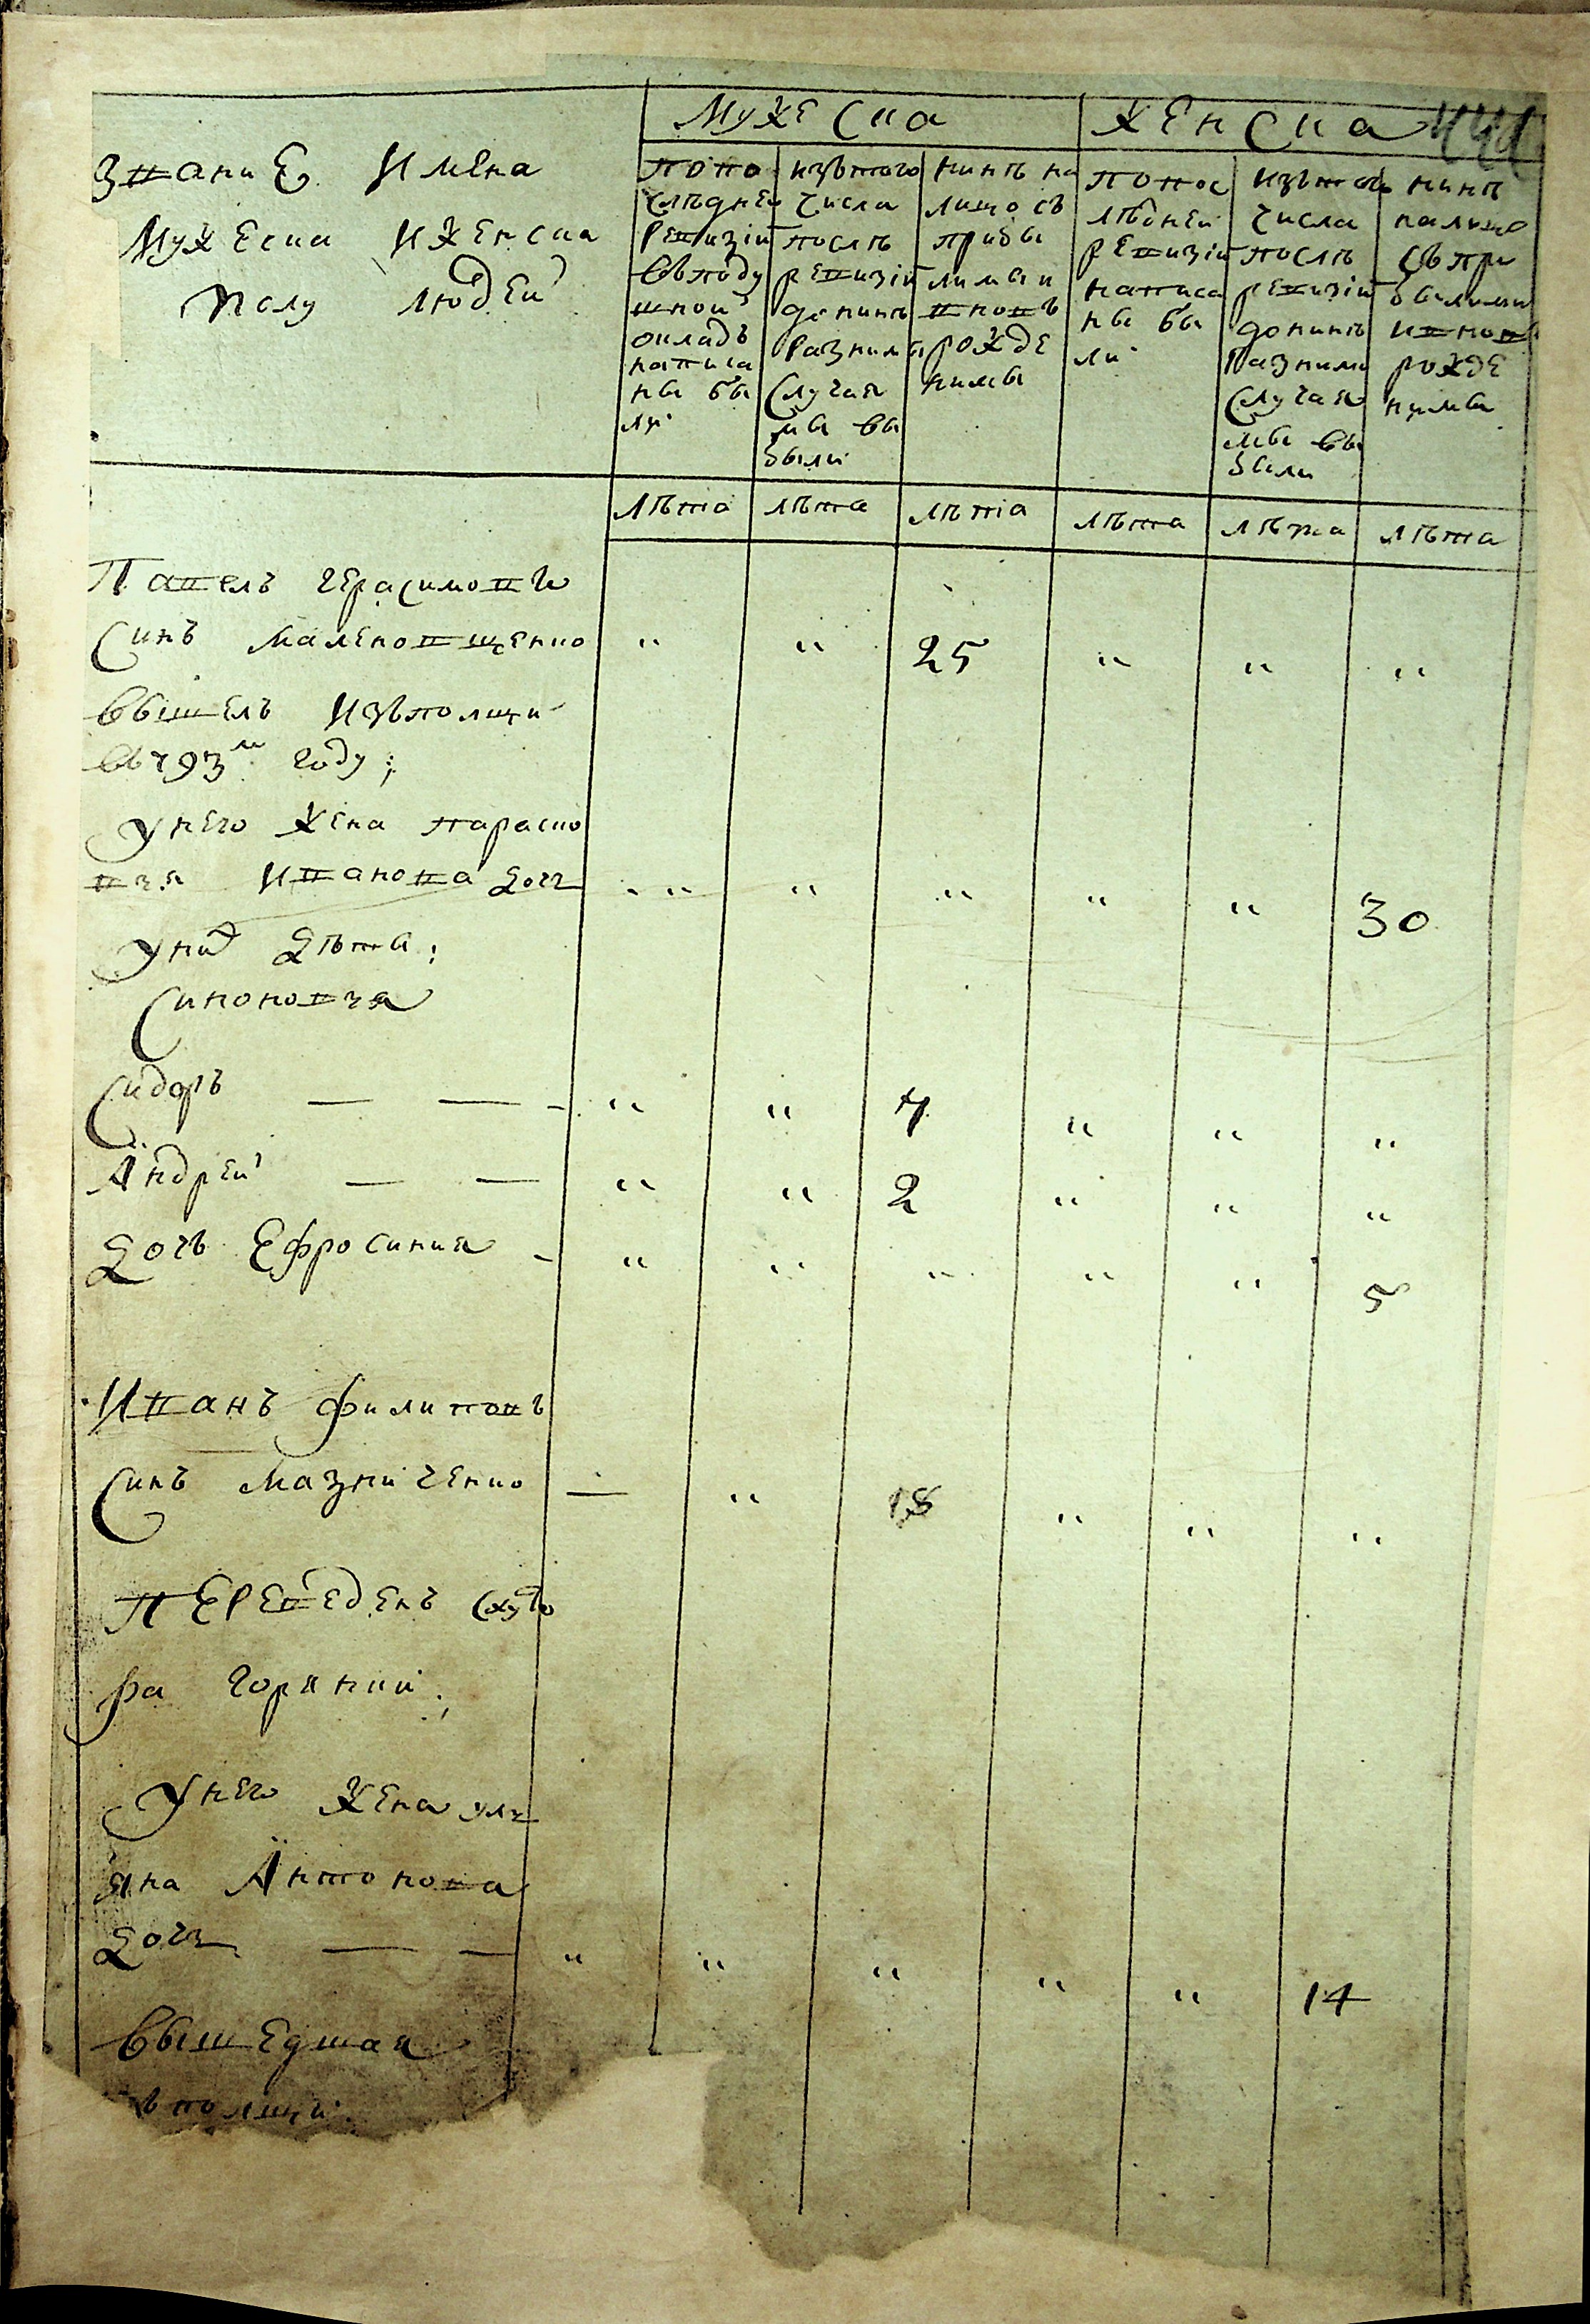 Мужеска
Женска
Звание Имена
Мужеска и Женска
полу людей
попо
слѣдней
Ревизіи
въ поду
шной
окладъ
написа
ны бы
ли
изътого
числа
послѣ
ревизіи
до нинѣ
Разними
Случая
мы вы
были
нинѣ на
лицо съ
прибы
лимы и
вновъ
рожде
нимы
попос
лѣдней
ревизіи
написа
ны бы
ли
изътого
числа
послѣ
ревизіи
до нинѣ
Разними
Случая
мы вы
были
нинѣ
налицо
съ при
былими
и вновъ
рожде
нимы
лѣта лѣта лѣта лѣта лѣта лѣта
Павелъ Герасимовъ
Синъ Малековщенко " " 25 " " "
вышелъ Изъполщи
въ 793м году;
Унего Жена параско
вья Иванова дочь " " " " " 30
Уних дѣты:
Синоковья
Сидоръ — — " " 7 " " "
Андрей — — " " 2 " " "
дочь Ефросиния - " " " " " 5
Иванъ Филиповъ
Синъ Мазниченко — " 18 " " "
Переведенъ Схуто
ра Горянии;
Унего Жена уль
яна Антонова
дочь — — " " " " " 14
вышедшая
ъполщи